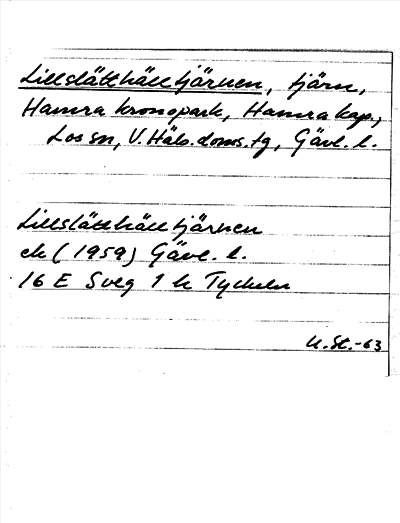 Lillslätthälltjärnen, tjärn,
Hamra kronopark, Hamra kap.,
Los sn, V. Häls. doms. tg, Gävl. l.
Lillslätthälltjärnen
ek (1959) Gävl. l.
16 E Sveg 1 h Tyckeln
U. St.-63